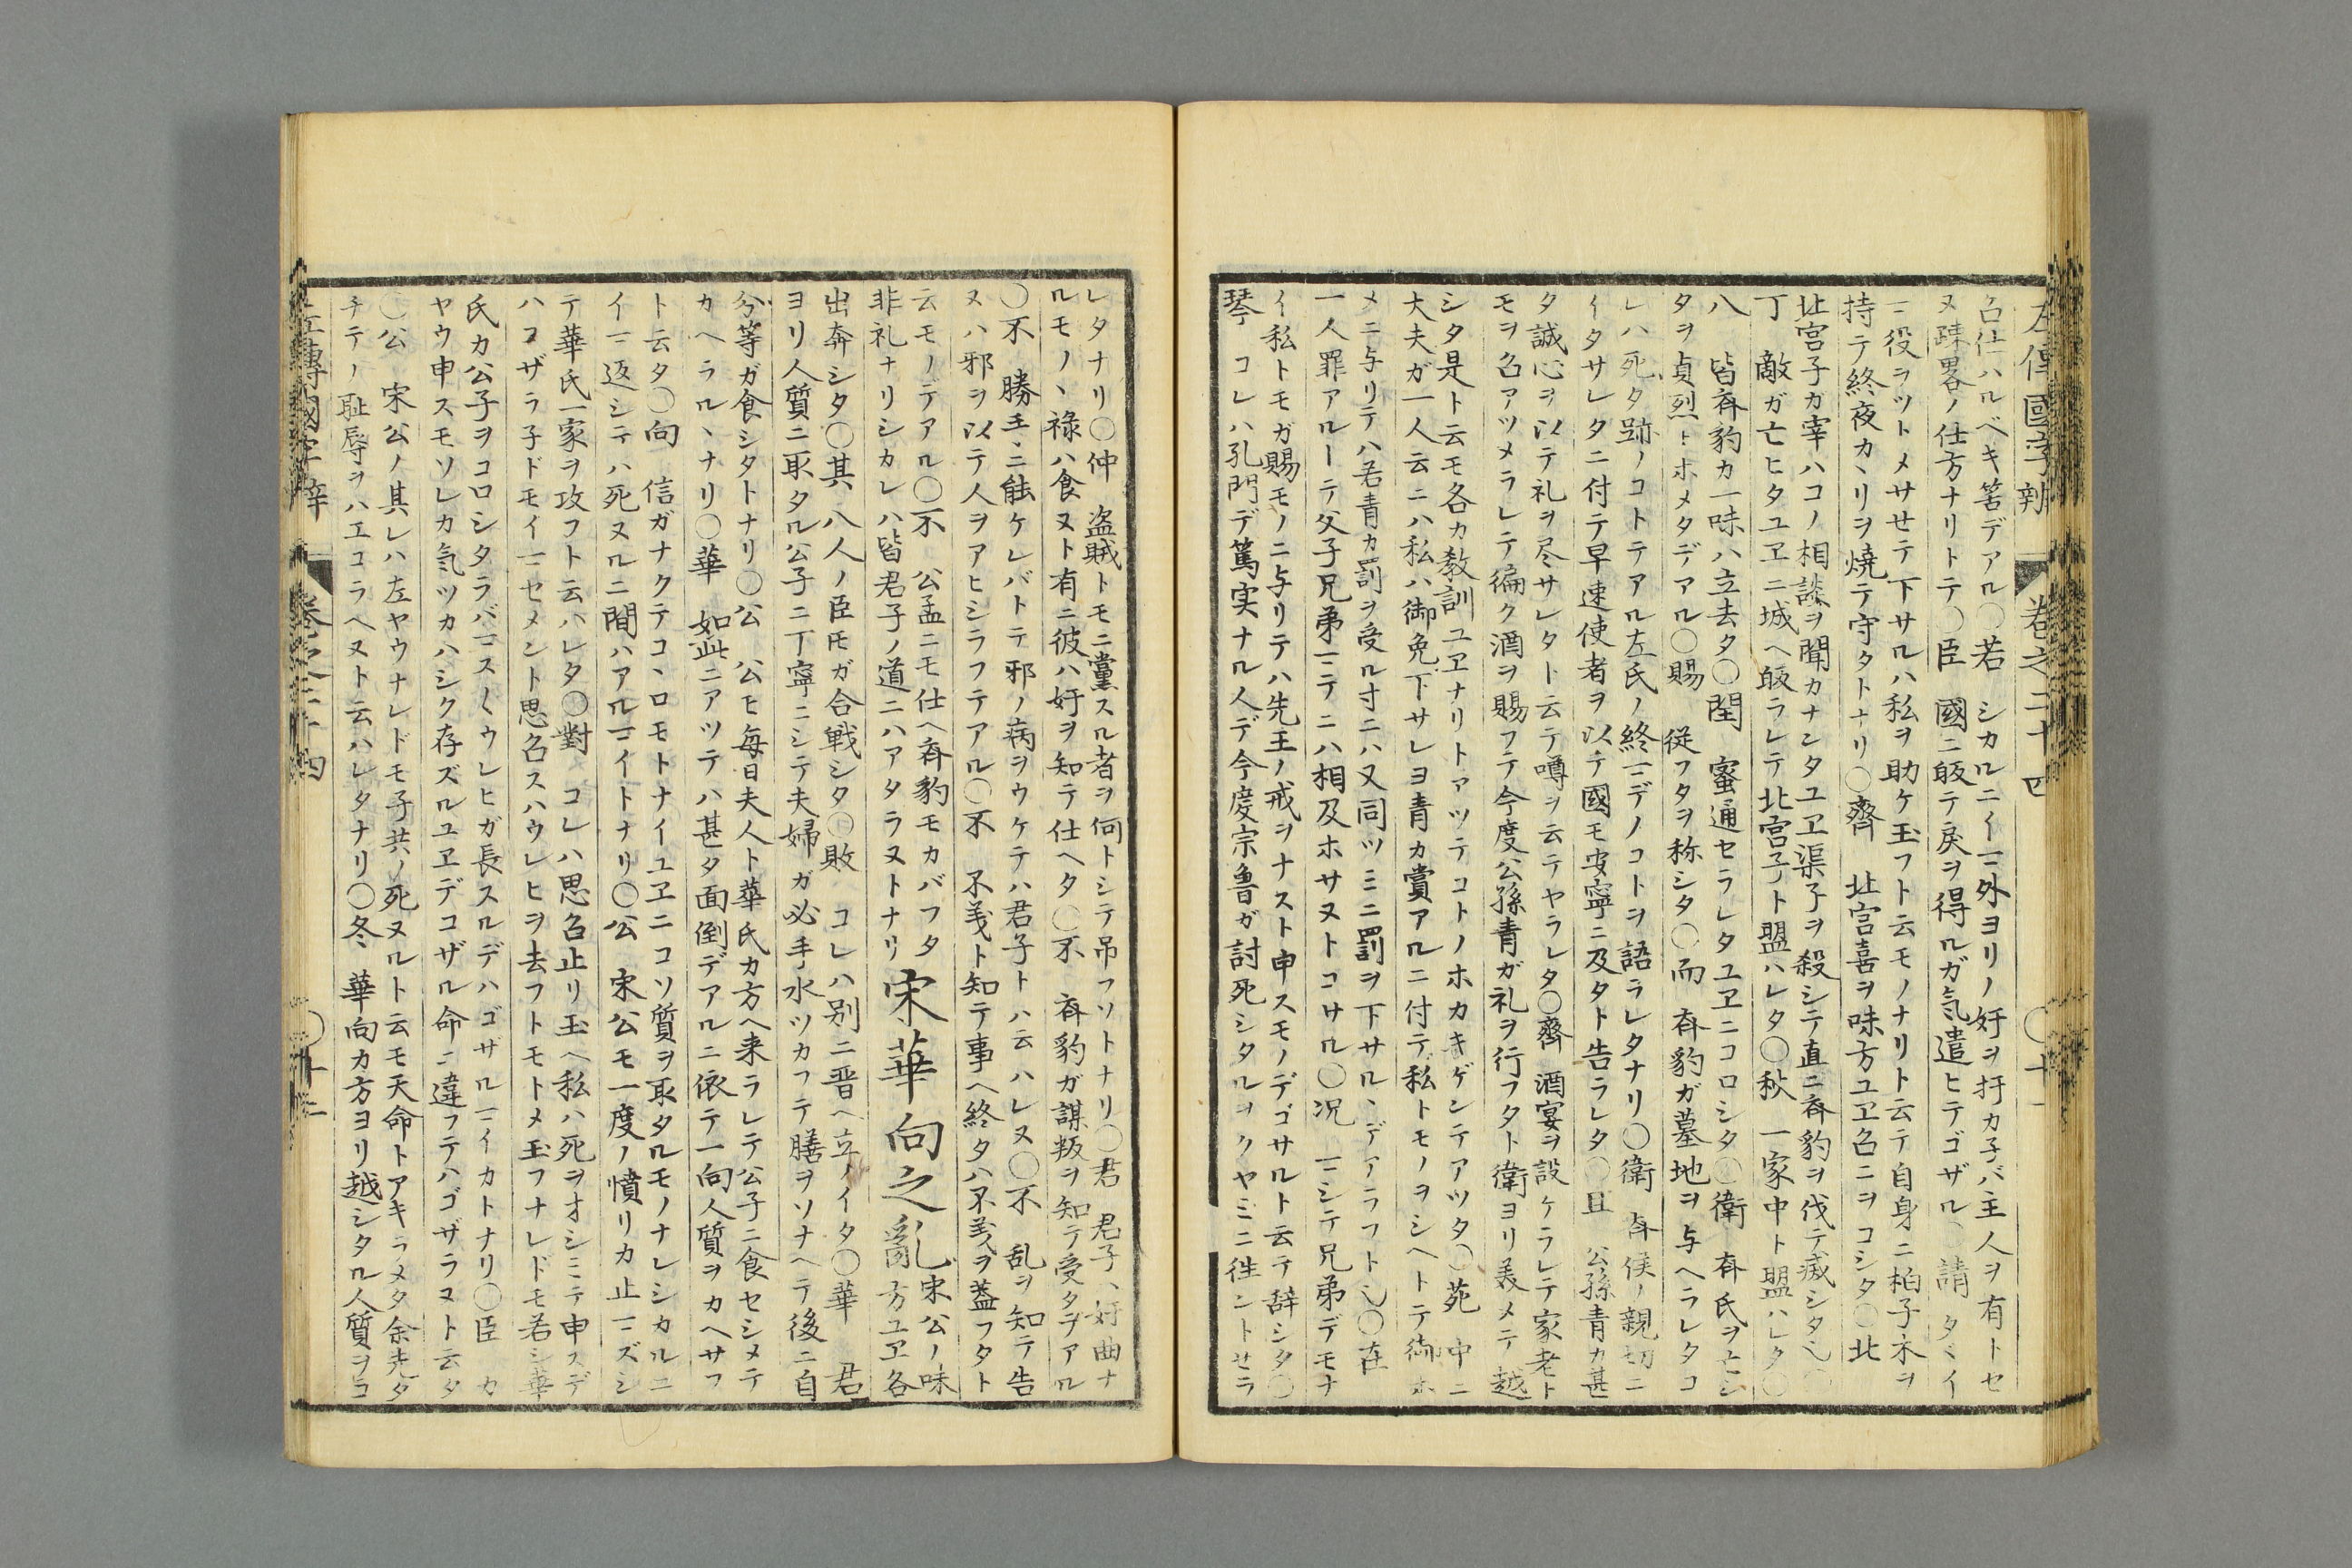 左傳國字辨 巻之二十四 〇十一
召仕ハルベキ筈デアル〇若 シカルニイマ外ヨリノ奸ヲ扞カ子バ主人ヲ有トセ
ヌ疎畧ノ仕方ナリトテ〇臣 國ニ皈テ戻ヲ得ルガ気遣ヒテゴザル〇請 タヾイ
マ役ヲツトメサセテ下サルハ私ヲ助ケ玉フト云モノナリト云テ自身ニ柏子木ヲ
持テ終夜カヽリヲ焼テ守タトナリ〇齊 北宮喜ヲ味方ユヱ召ニヲコシタ〇北
北宮子カ宰ハコノ相談ヲ聞カナンタユヱ渠子ヲ殺シテ直ニ斉豹ヲ伐テ滅シタ也〇
丁 敵ガ亡ヒタユヱニ城ヘ皈ラレテ北宮子ト盟ハレタ〇秋 一家中ト盟ハレタ〇
八 皆斉豹カ一味ハ立去タ〇閏 蜜通セラレタユヱニコロシタ〇衛 斉氏ヲ亡シ
タヲ貞烈トホメタデアル〇賜 従フタヲ称シタ〇而 斉豹ガ墓地ヲ与ヘラレタコ
レハ死タ跡ノコトテアル左氏ノ終マデノコトヲ語ラレタナリ〇衛 斉侯ノ親切ニ
イタサレタニ付テ早速使者ヲ以テ國モ安寧ニ及タト告ラレタ〇且 公孫青カ甚
タ誠心ヲ以テ礼ヲ尽サレタト云テ噂ヲ云テヤラレタ〇齊 酒宴ヲ設ケラレテ家老ト
モヲ召アツメラレテ徧ク酒ヲ賜フテ今度公孫青ガ礼ヲ行フタト衛ヨリ義メテ越
シタ是ト云モ各カ教訓ユヱナリトアツテコトノホカキゲンテアツタ〇苑 中ニ
大夫ガ一人云ニハ私ハ御免下サレヨ青カ賞アルニ付テ私トモノヲシヘトテ御ホ
メニ与リテハ若青カ罰ヲ受ル寸ニハ又同ツミニ罰ヲ下サルヽデアラフト也〇在
一人罪アルーテ父子兄弟マテニハ相及ホサヌトコサル〇况 マシテ兄弟デモナ
イ私トモガ賜モノニ与リテハ先王ノ戒ヲナスト申スモノデゴサルト云テ辞シタ〇
琴 コレハ孔門デ篤実ナル人デ今度宗魯ガ討死シタルヲクヤミニ徃ントせラ
レタナリ〇仲 盗賊トモニ黨スル者ヲ何トシテ吊フソトナリ〇君 君子ハ奸曲ナ
ルモノヽ禄ハ食ヌト有ニ彼ハ奸ヲ知テ仕ヘタ〇不 斉豹ガ謀叛ヲ知テ受タヲアル
〇不 勝手ニ能ケレバトテ邪ノ病ヲウケテハ君子トハ云ハレヌ〇不 乱ヲ知テ告
ヌハ邪ヲ以テ人ヲアヒシラフテアル〇不 不義ト知テ事ヘ終タハ不義ヲ蓋フタト
云モノデアル〇不 公孟ニモ仕ヘ斉豹モカバフタ
非礼ナリシカレハ皆君子ノ道ニハアタラヌトナリ
宋華向之亂 宋公ノ味
方ユヱ各
出奔シタ〇其 八人ノ臣𪜈ガ合戦シタ〇敗 コレハ別ニ晋ヘ立ノイタ〇華 君
ヨリ人質ニ取タル公子ニ丁寧ニシテ夫婦ガ必手水ツカフテ膳ヲソナヘテ後ニ自
分等ガ食シタトナリ〇公 公モ毎日夫人ト華氏カ方ヘ来ラレテ公子ニ食セシメテ
カヘラルヽナリ〇華 如此ニアツテハ甚タ面倒デアルニ依テ一向人質ヲカヘサフ
ト云タ〇向 信ガナクテコヽロモトナイユヱニコソ質ヲ取タルモノナレシカルニ
イマ返シテハ死ヌルニ間ハアルマイトナリ〇公 宋公モ一度ノ憤リカ止マズシ
テ華氏一家ヲ攻フト云ハレタ〇對 コレハ思召止リ玉ヘ私ハ死ヲオシミテ申スデ
ハコザラ子ドモイマセメント思召スハウレヒヲ去フトモトメ玉フナレドモ若シ華
氏カ公子ヲコロシタラバマスくウレヒガ長スルデハゴザルマイカトナリ〇臣 カ
ヤウ申スモソレカ気ツカハシク存ズルユヱデコザル命ニ違フテハゴザラヌト云タ
〇公 宋公ノ其レハ左ヤウナレドモ子共ノ死ヌルト云モ天命トアキラメタ余売タ
チテノ耻辱ヲハエコラヘヌト云ハレタナリ〇冬 華向カ方ヨリ越シタル人質ヲコ
左傳國字辨 巻之二十四 〇十二